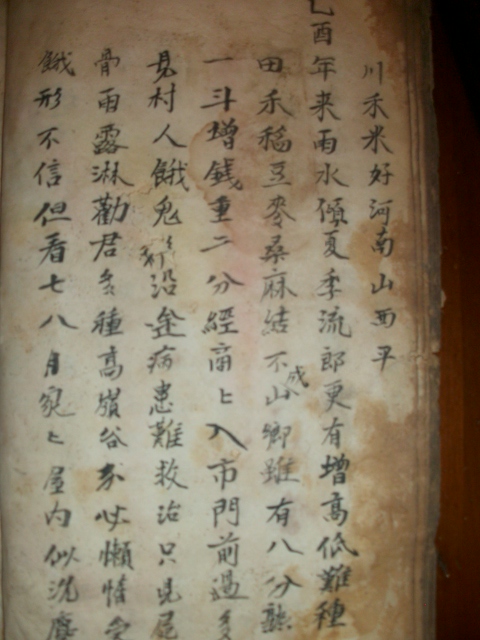 川禾米好河南山西平
乙酉年来雨水傾夏季流郎更有增高低難種
田禾稻豆麥桑麻結不成山鄉雖有八分熟
一斗增錢重二分經商卜入市門前過多
見村人餓鬼 沿途病患難救治只見屍
骨雨露淋勸君多種高嶺谷 必懶惰受
餓形不信但看七八月家卜屋内似洗塵